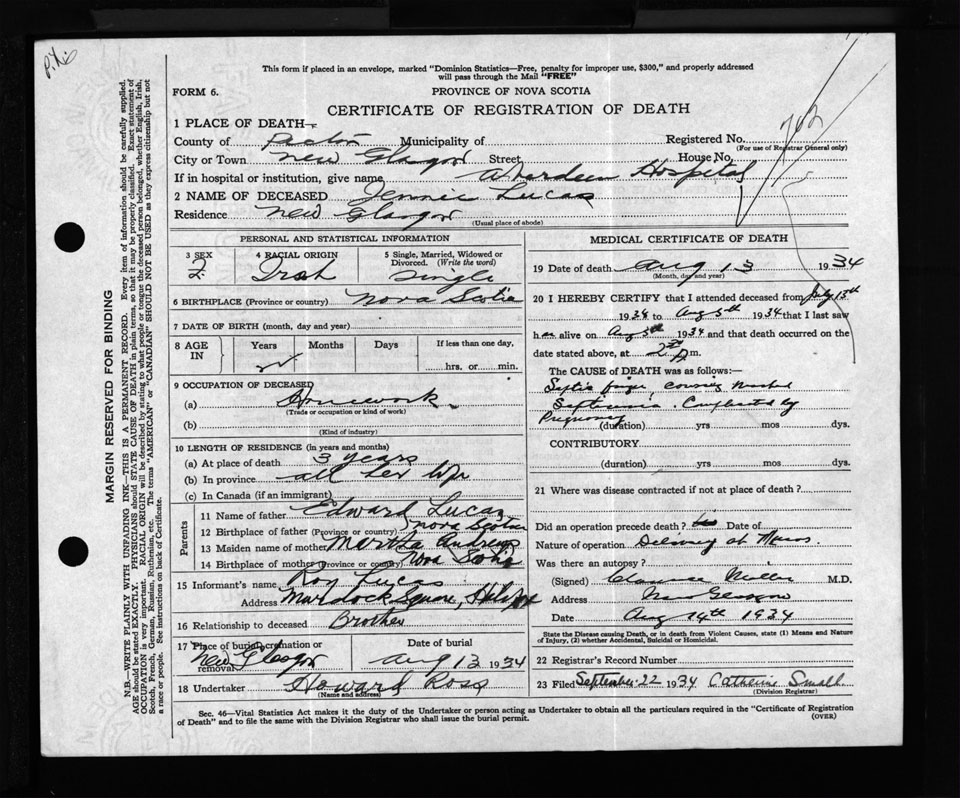 This form if placed in an envelope, marked "Dominion Statistics—Free, penalty for improper use, $300," and properly addressed
will pass through the Mail "FREE"
FORM 6.
PROVINCE OF NOVA SCOTIA
CERTIFICATE OF REGISTRATION OF DEATH
1 PLACE OF DEATH—
County of Pictou Municipality of Registered No.
(For use of Registrar General only)
762
City or Town New Glasgow Street House No.
If in hospital or institution, give name Aberdeen Hospital
2 NAME OF DECEASED Jennie Lucas
Residence New Glasgow
(Usual place of abode)
PERSONAL AND STATISTICAL INFORMATION
3 SEX 4 RACIAL ORIGIN 5 Single, Married, Widowed or Divorced. (Write the word)
Irish Single
6 BIRTHPLACE (Province or country) Nova Scotia
7 DATE OF BIRTH (month, day and year)
8 AGE IN Years Months Days If less than one day,
hrs. or min.
9 OCCUPATION OF DECEASED
(a) Housework
(Trade or occupation or kind of work)
(b)
(Kind of industry)
10 LENGTH OF RESIDENCE (in years and months)
(a) At place of death 3 years
(b) In province all her life
(c) In Canada (if an immigrant)
Parents
11 Name of father Edward Lucas
12 Birthplace of father (Province or country) Nova Scotia
13 Maiden name of mother Martha Andrews
14 Birthplace of mother (Province or country) Nova Scotia
15 Informant's name Roy Lucas
Address Murdock Square, Halifax
16 Relationship to deceased Brother
17 Place of burial, cremation or removal Date of burial
New Glasgow Aug 13 1934
18 Undertaker Howard Ross
(Name and address)
MEDICAL CERTIFICATE OF DEATH
19 Date of death Aug 13 1934
(Month, day and year)
20 I HEREBY CERTIFY that I attended deceased from July 13th
1934 to Aug 5th 1934 that I last saw
her alive on Aug 5th 1934 and that death occurred on the
date stated above, at m.
The CAUSE of DEATH was as follows:—
Septic finger causing marked
Septicemia. Complicated by
Pregnancy
(duration) yrs mos dys.
CONTRIBUTORY
(duration) yrs. mos. dys.
21 Where was disease contracted if not at place of death?
Did an operation precede death? Date of
Nature of operation Delivery at
Was there an autopsy?
(Signed) Clarence Miller M.D.
Address New Glasgow
Date Aug 14th 1934
State the Disease causing Death, or in death from Violent Causes, state (1) Means and Nature
of Injury, (2) whether Accidental, Suicidal or Homicidal.
22 Registrar's Record Number
23 Filed September 22 1934 Catherine Small
(Division Registrar)
Sec. 46—Vital Statistics Act makes it the duty of the Undertaker or person acting as Undertaker to obtain all the particulars required in the "Certificate of Registration
of Death" and to file the same with the Division Registrar who shall issue the burial permit.
(OVER)
MARGIN RESERVED FOR BINDING
N.B.—WRITE PLAINLY WITH UNFADING INK—THIS IS A PERMANENT RECORD. Every item of information should be carefully supplied.
AGE should be stated EXACTLY. PHYSICIANS should STATE CAUSE OF DEATH in plain terms, so that it may be properly classified. Exact statement of
OCCUPATION is very important. RACIAL ORIGIN will be described by stating to what people or tongue the deceased person belonged, whether English, Irish,
Scotch, French, German, Russian, Ruthenian, etc. The terms "AMERICAN" or "CANADIAN" SHOULD NOT BE USED as they express citizenship but not
a race or people. See instructions on back of Certificate.